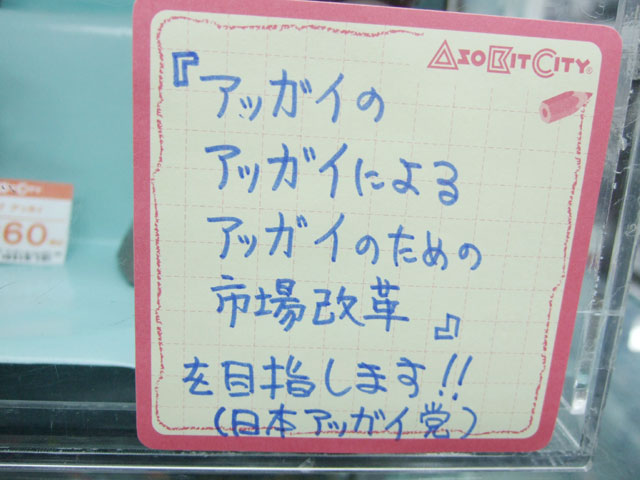 ASOBITCITY®
『アッガイの
アッガイによる
アッガイのための
市場改革』
を目指します!!
(日本アッガイ党)
60